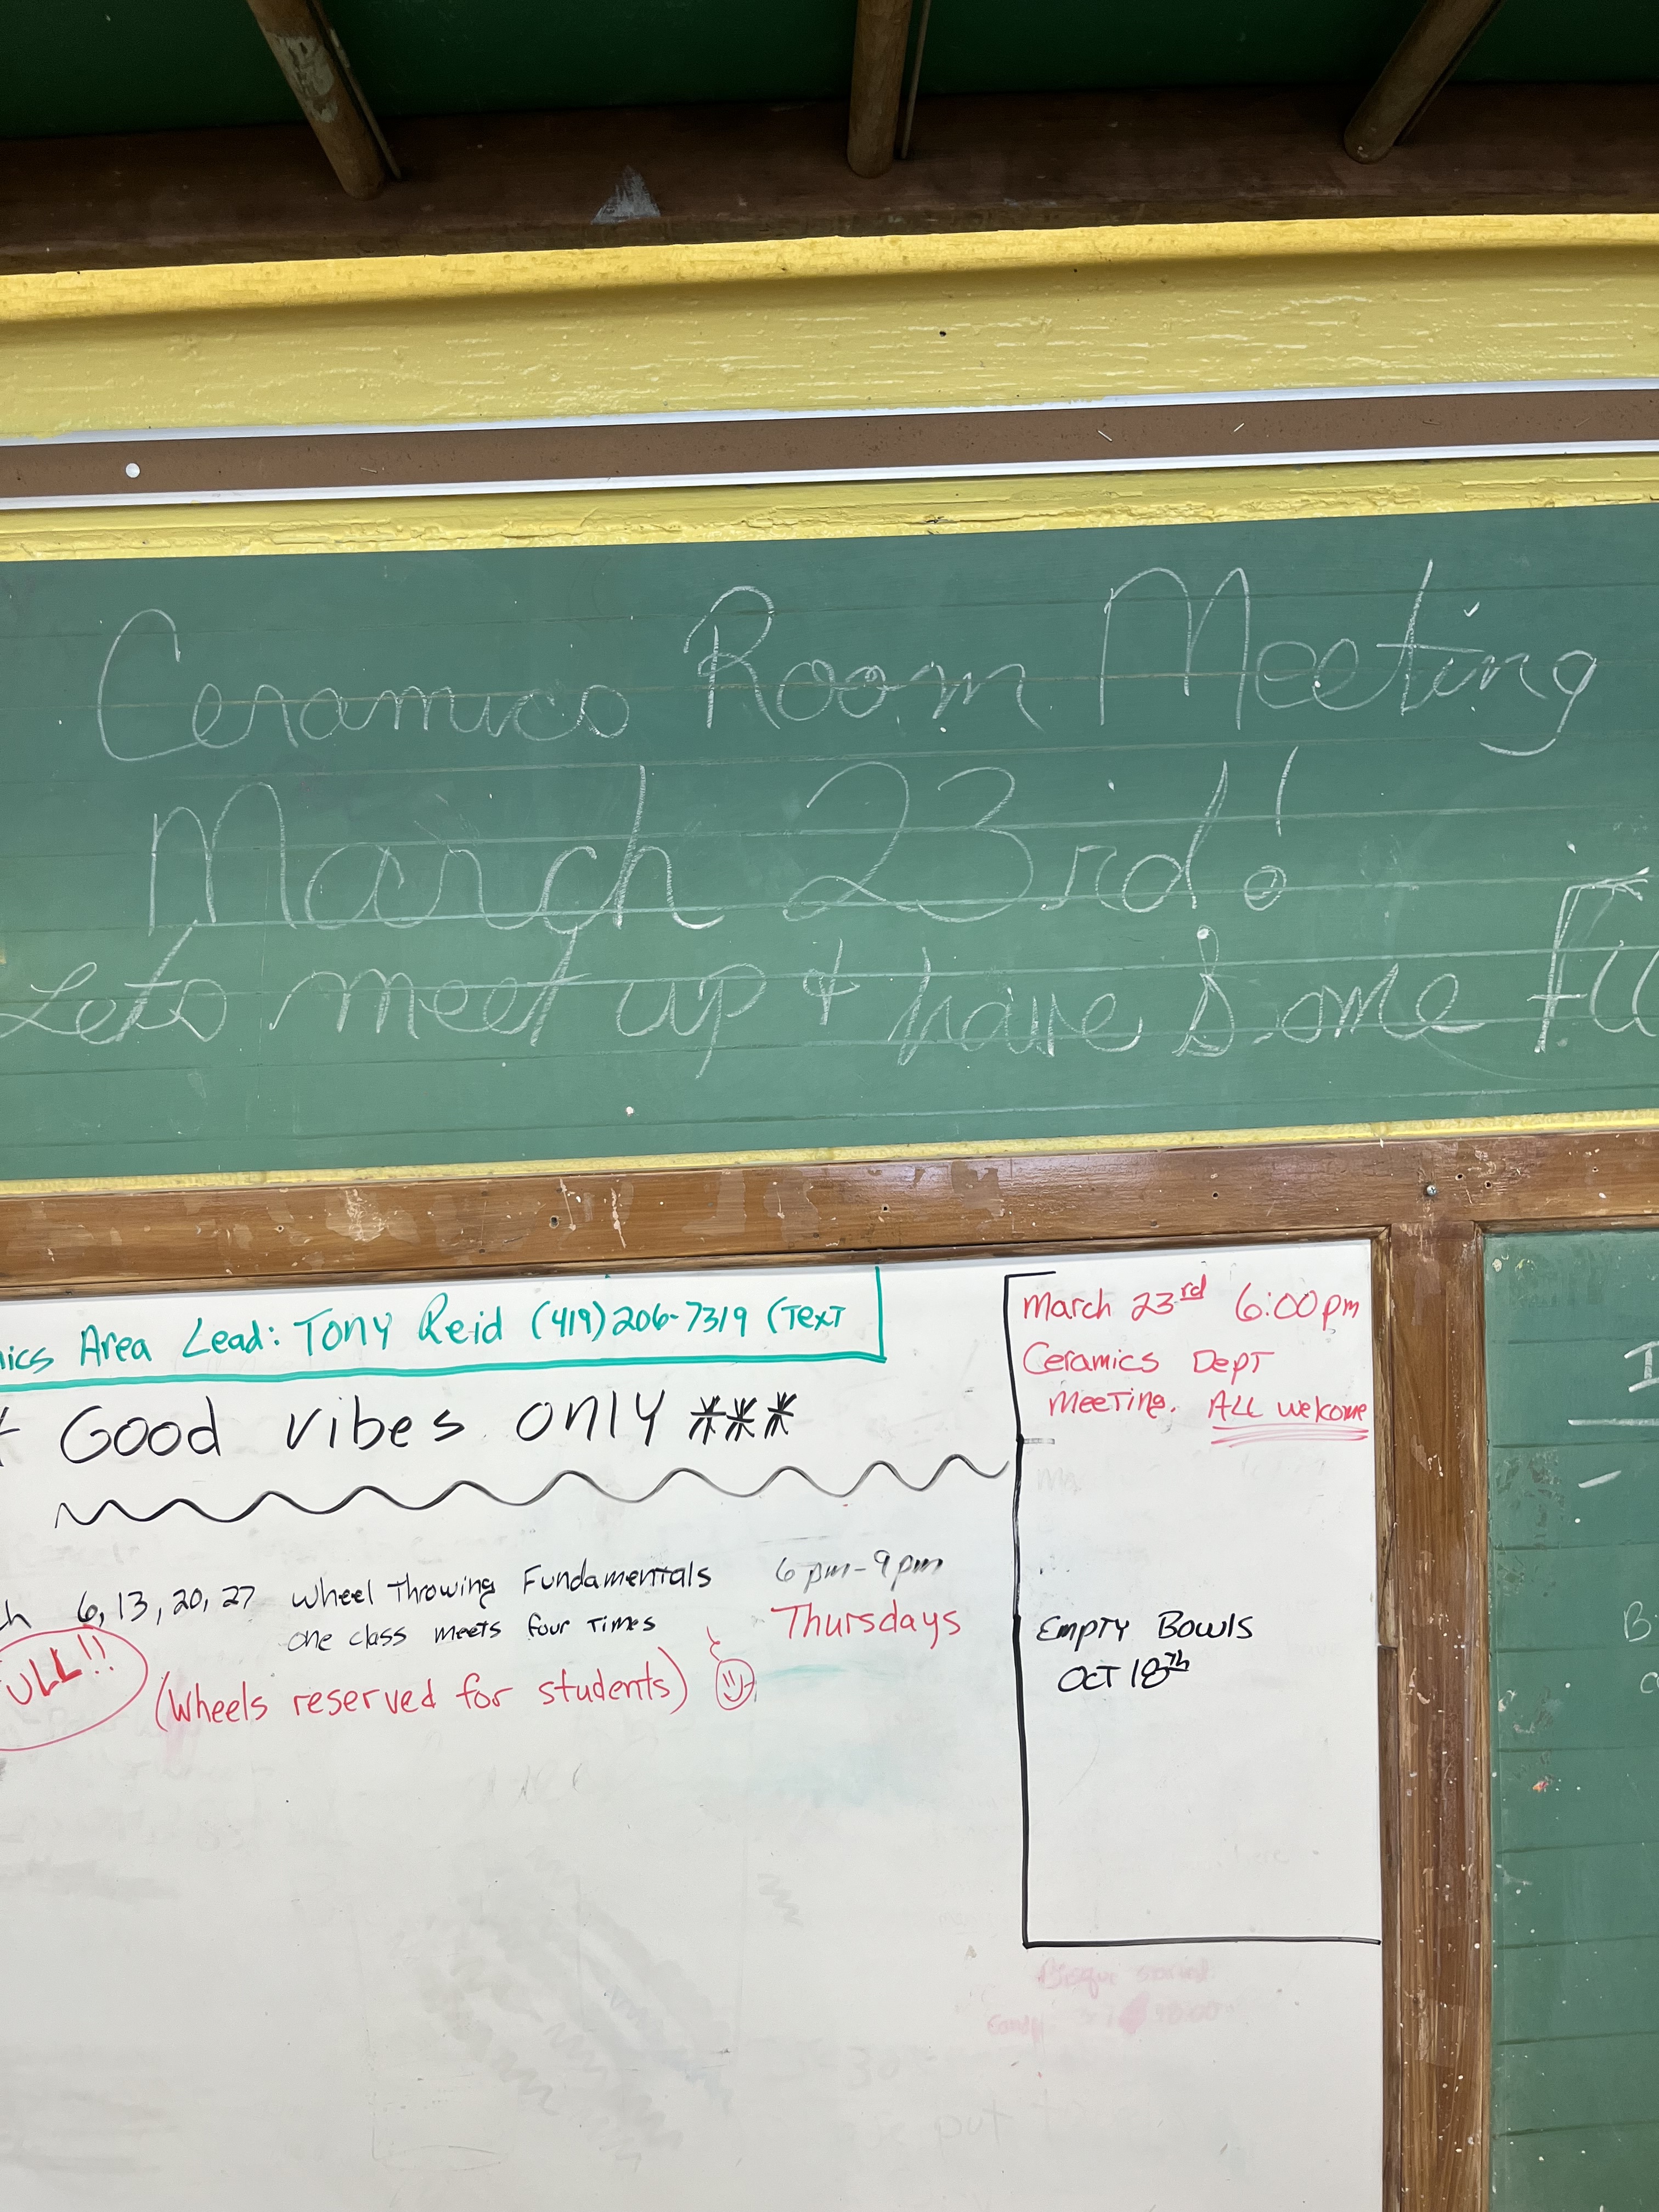 Ceramics Room Meeting
March 23rd!
Lets meet up & have some Fu
nics Area Lead: Tony Reid (419) 206-7319 (Text
Good vibes only ***
March 23rd 6:00pm
Ceramics Dept
Meeting. ALL welcome
ch 6, 13, 20, 27 Wheel Throwing Fundamentals 6pm-9pm
one class meets four times Thursdays
ULL!! (Wheels reserved for students)
Empty Bowls
Oct 18th